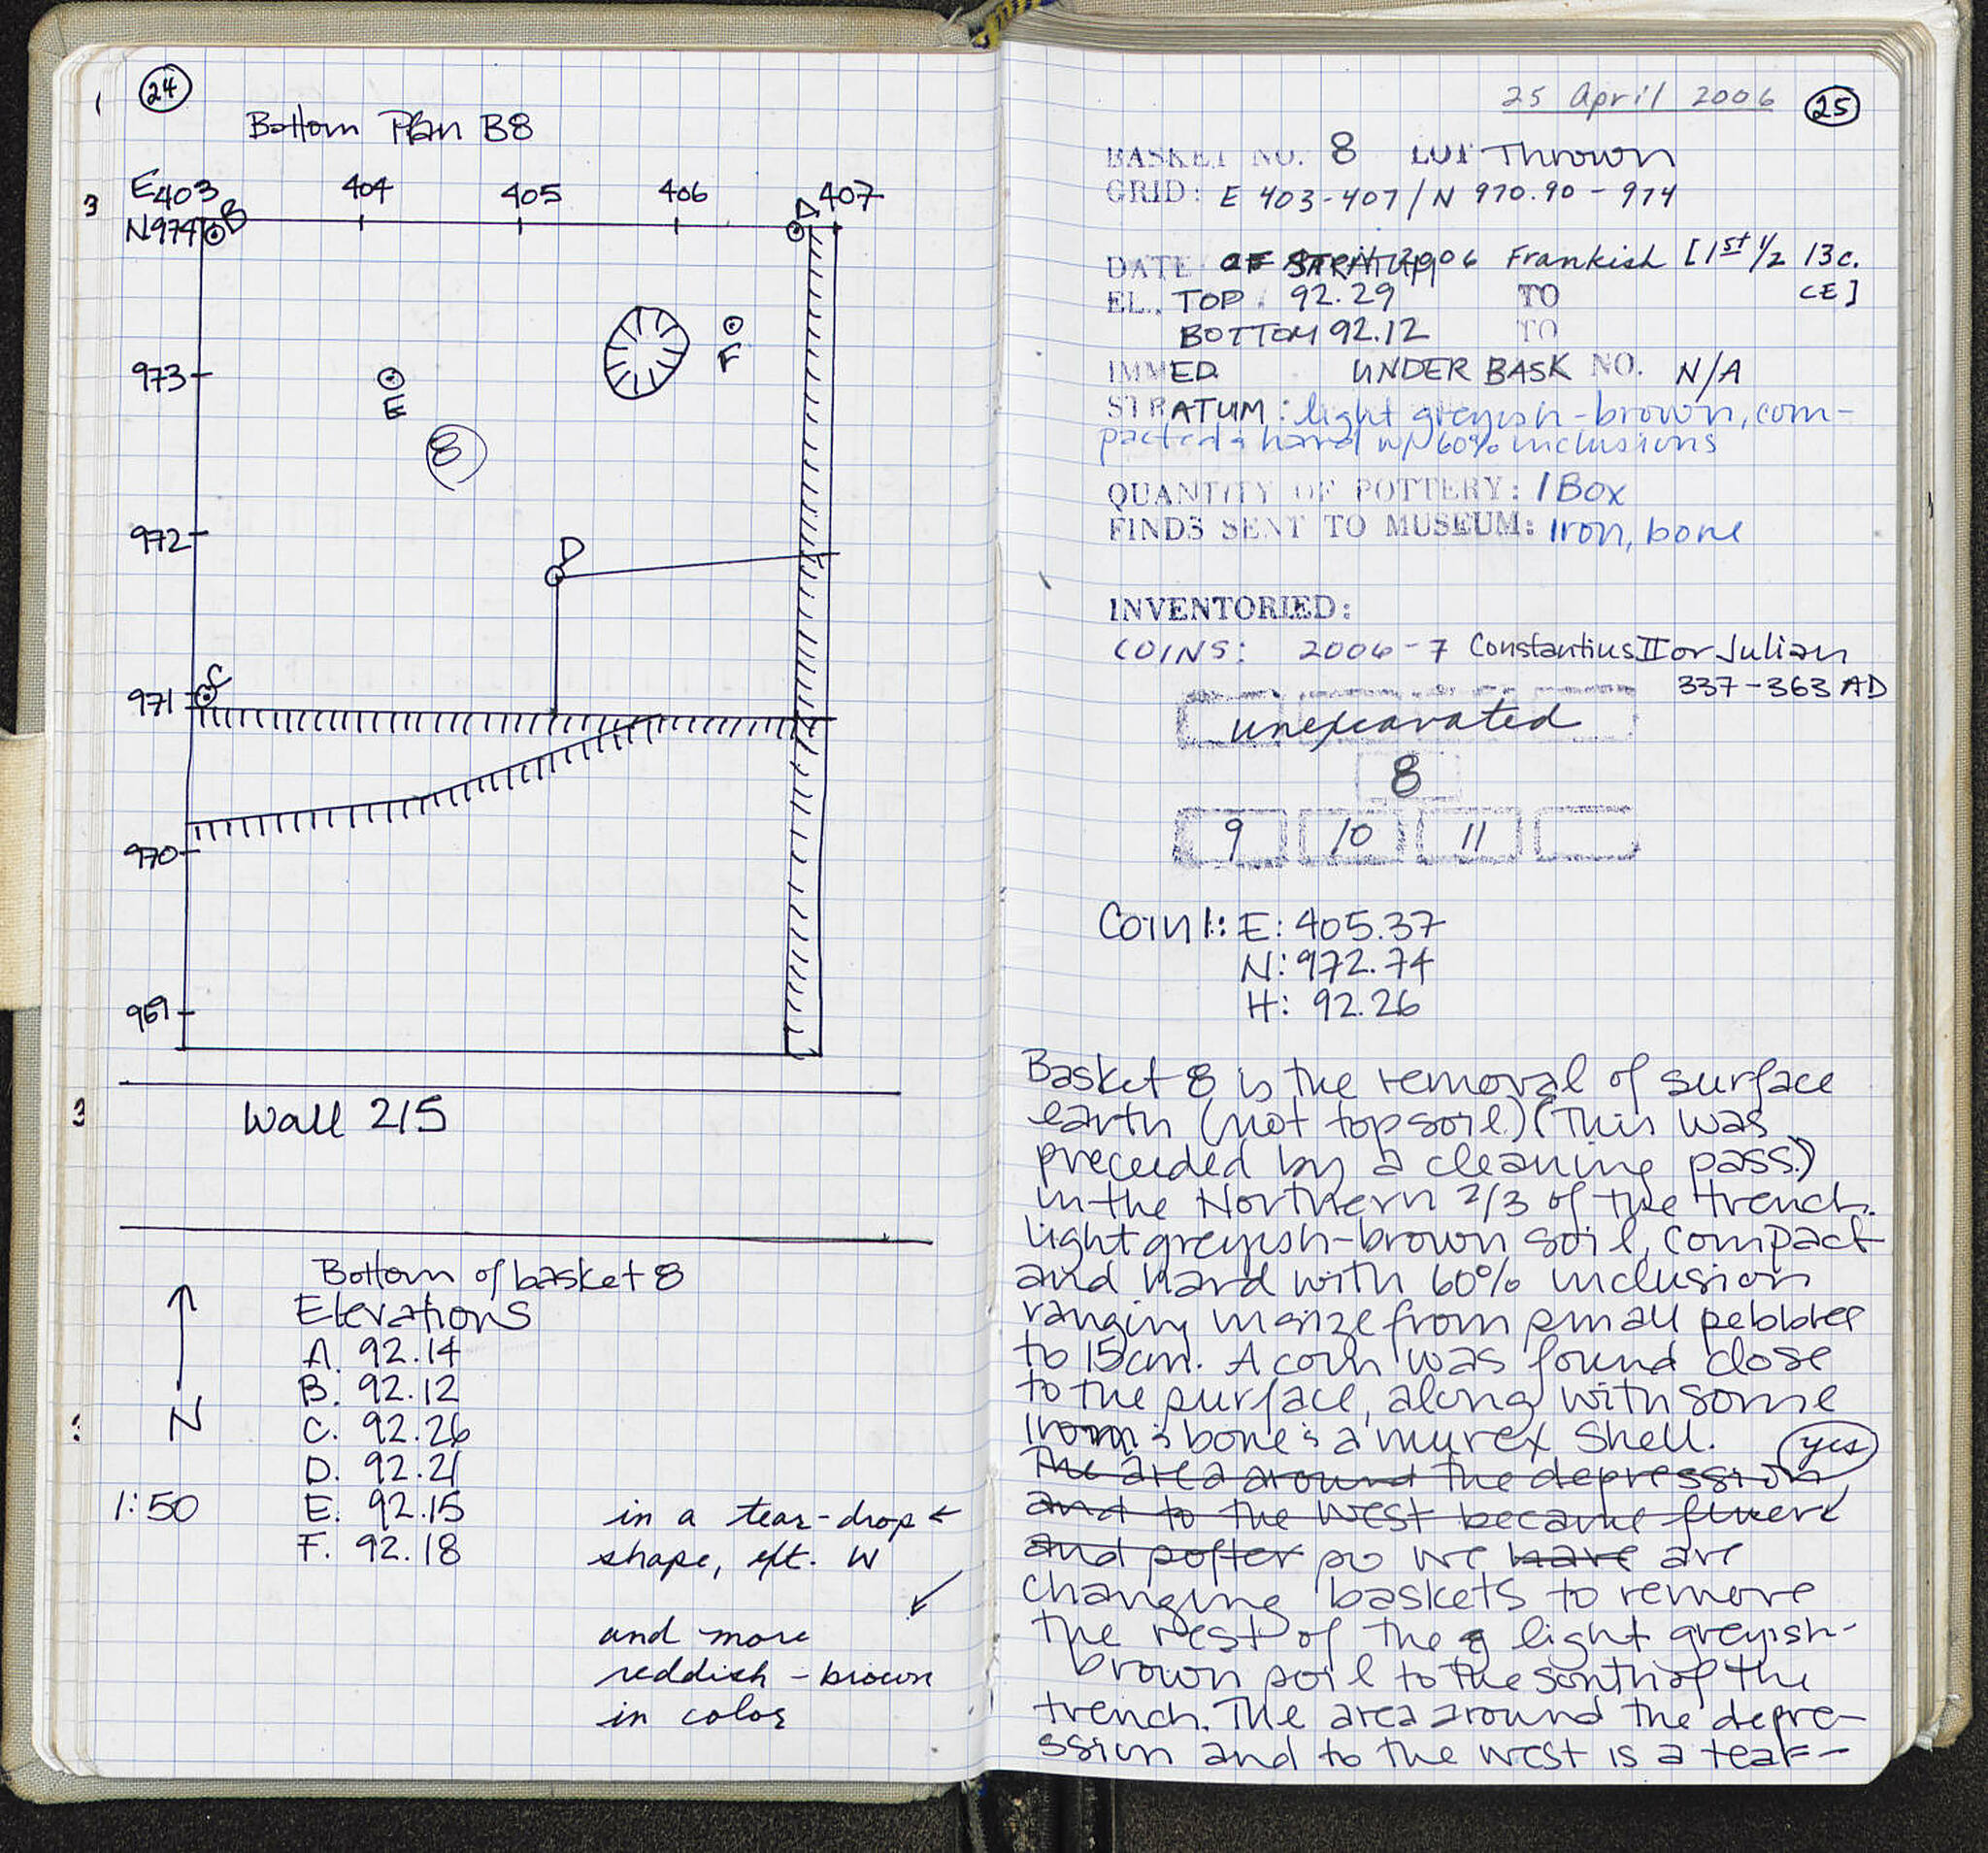 24
Bottom Plan B8
E403 404 405 406 407
N974 B D
973
E
F
8
972
D
971 C
970
969
Wall 215
Bottom of basket 8
Elevations
A. 92.14
B. 92.12
C. 92.26
D. 92.21
1:50 E. 92.15
F. 92.18
N
in a tear-drop
shape, ext. W
and more
reddish-brown
in color
25 April 2006 25
BASKET NO. 8 LOT Thrown
GRID: E 403-407/N 970.90-974
DATE OF STRATUM Frankish [1st 1/2 13c.
CE]
EL. TOP 92.29 TO
BOTTOM 92.12 TO
IMMED UNDER BASK NO. N/A
STRATUM: light greyish-brown, com-
pacted & hard w/ 60% inclusions
QUANTITY OF POTTERY: 1 Box
FINDS SENT TO MUSEUM: Iron, bone
INVENTORIED:
COINS: 2006-7 Constantius II or Julian
337-363 AD
unexcavated
8
9 10 11
Coin 1: E: 405.37
N: 972.74
H: 92.26
Basket 8 is the removal of surface
earth (not topsoil) (This was
preceeded by a cleaning pass.)
in the Northern 2/3 of the trench.
light greyish-brown soil, compact
and hard with 60% inclusion
ranging in size from small pebbles
to 15cm. A coin was found close
to the surface, along with some
iron & bone & a murex shell.
yes
The area around the depression
and to the west became finer
and softer so we have are
changing baskets to remove
the rest of the light greyish-
brown soil to the south of the
trench. The area around the depre-
ssion and to the west is a tear-